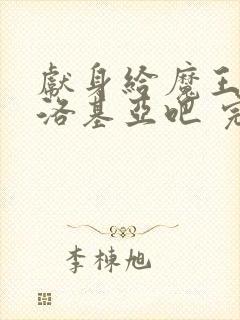 獻身給魔王
洛基亞吧 完
李棟旭